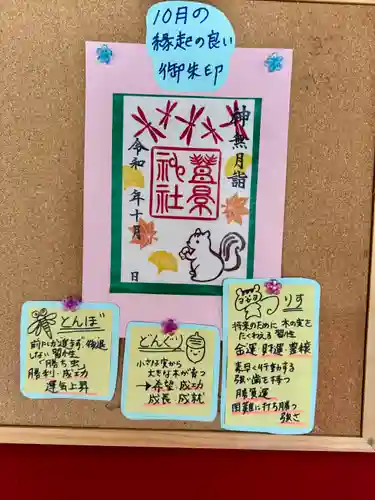 10月の
縁起の良い
御朱印
神無月詣
令和 年十月 日
神社
とんぼ
前にしか進まず、後退
しない習性
で勝ち虫
勝利・成功
運気上昇
どんぐり
小さな実から
大きな木が育つ
→希望・成功
成長・成就
りす
将来のために木の実を
たくわえる習性
金運・財運・蓄積
素早く行動する
強い歯を持つ
勝負運
困難に打ち勝つ
強さ